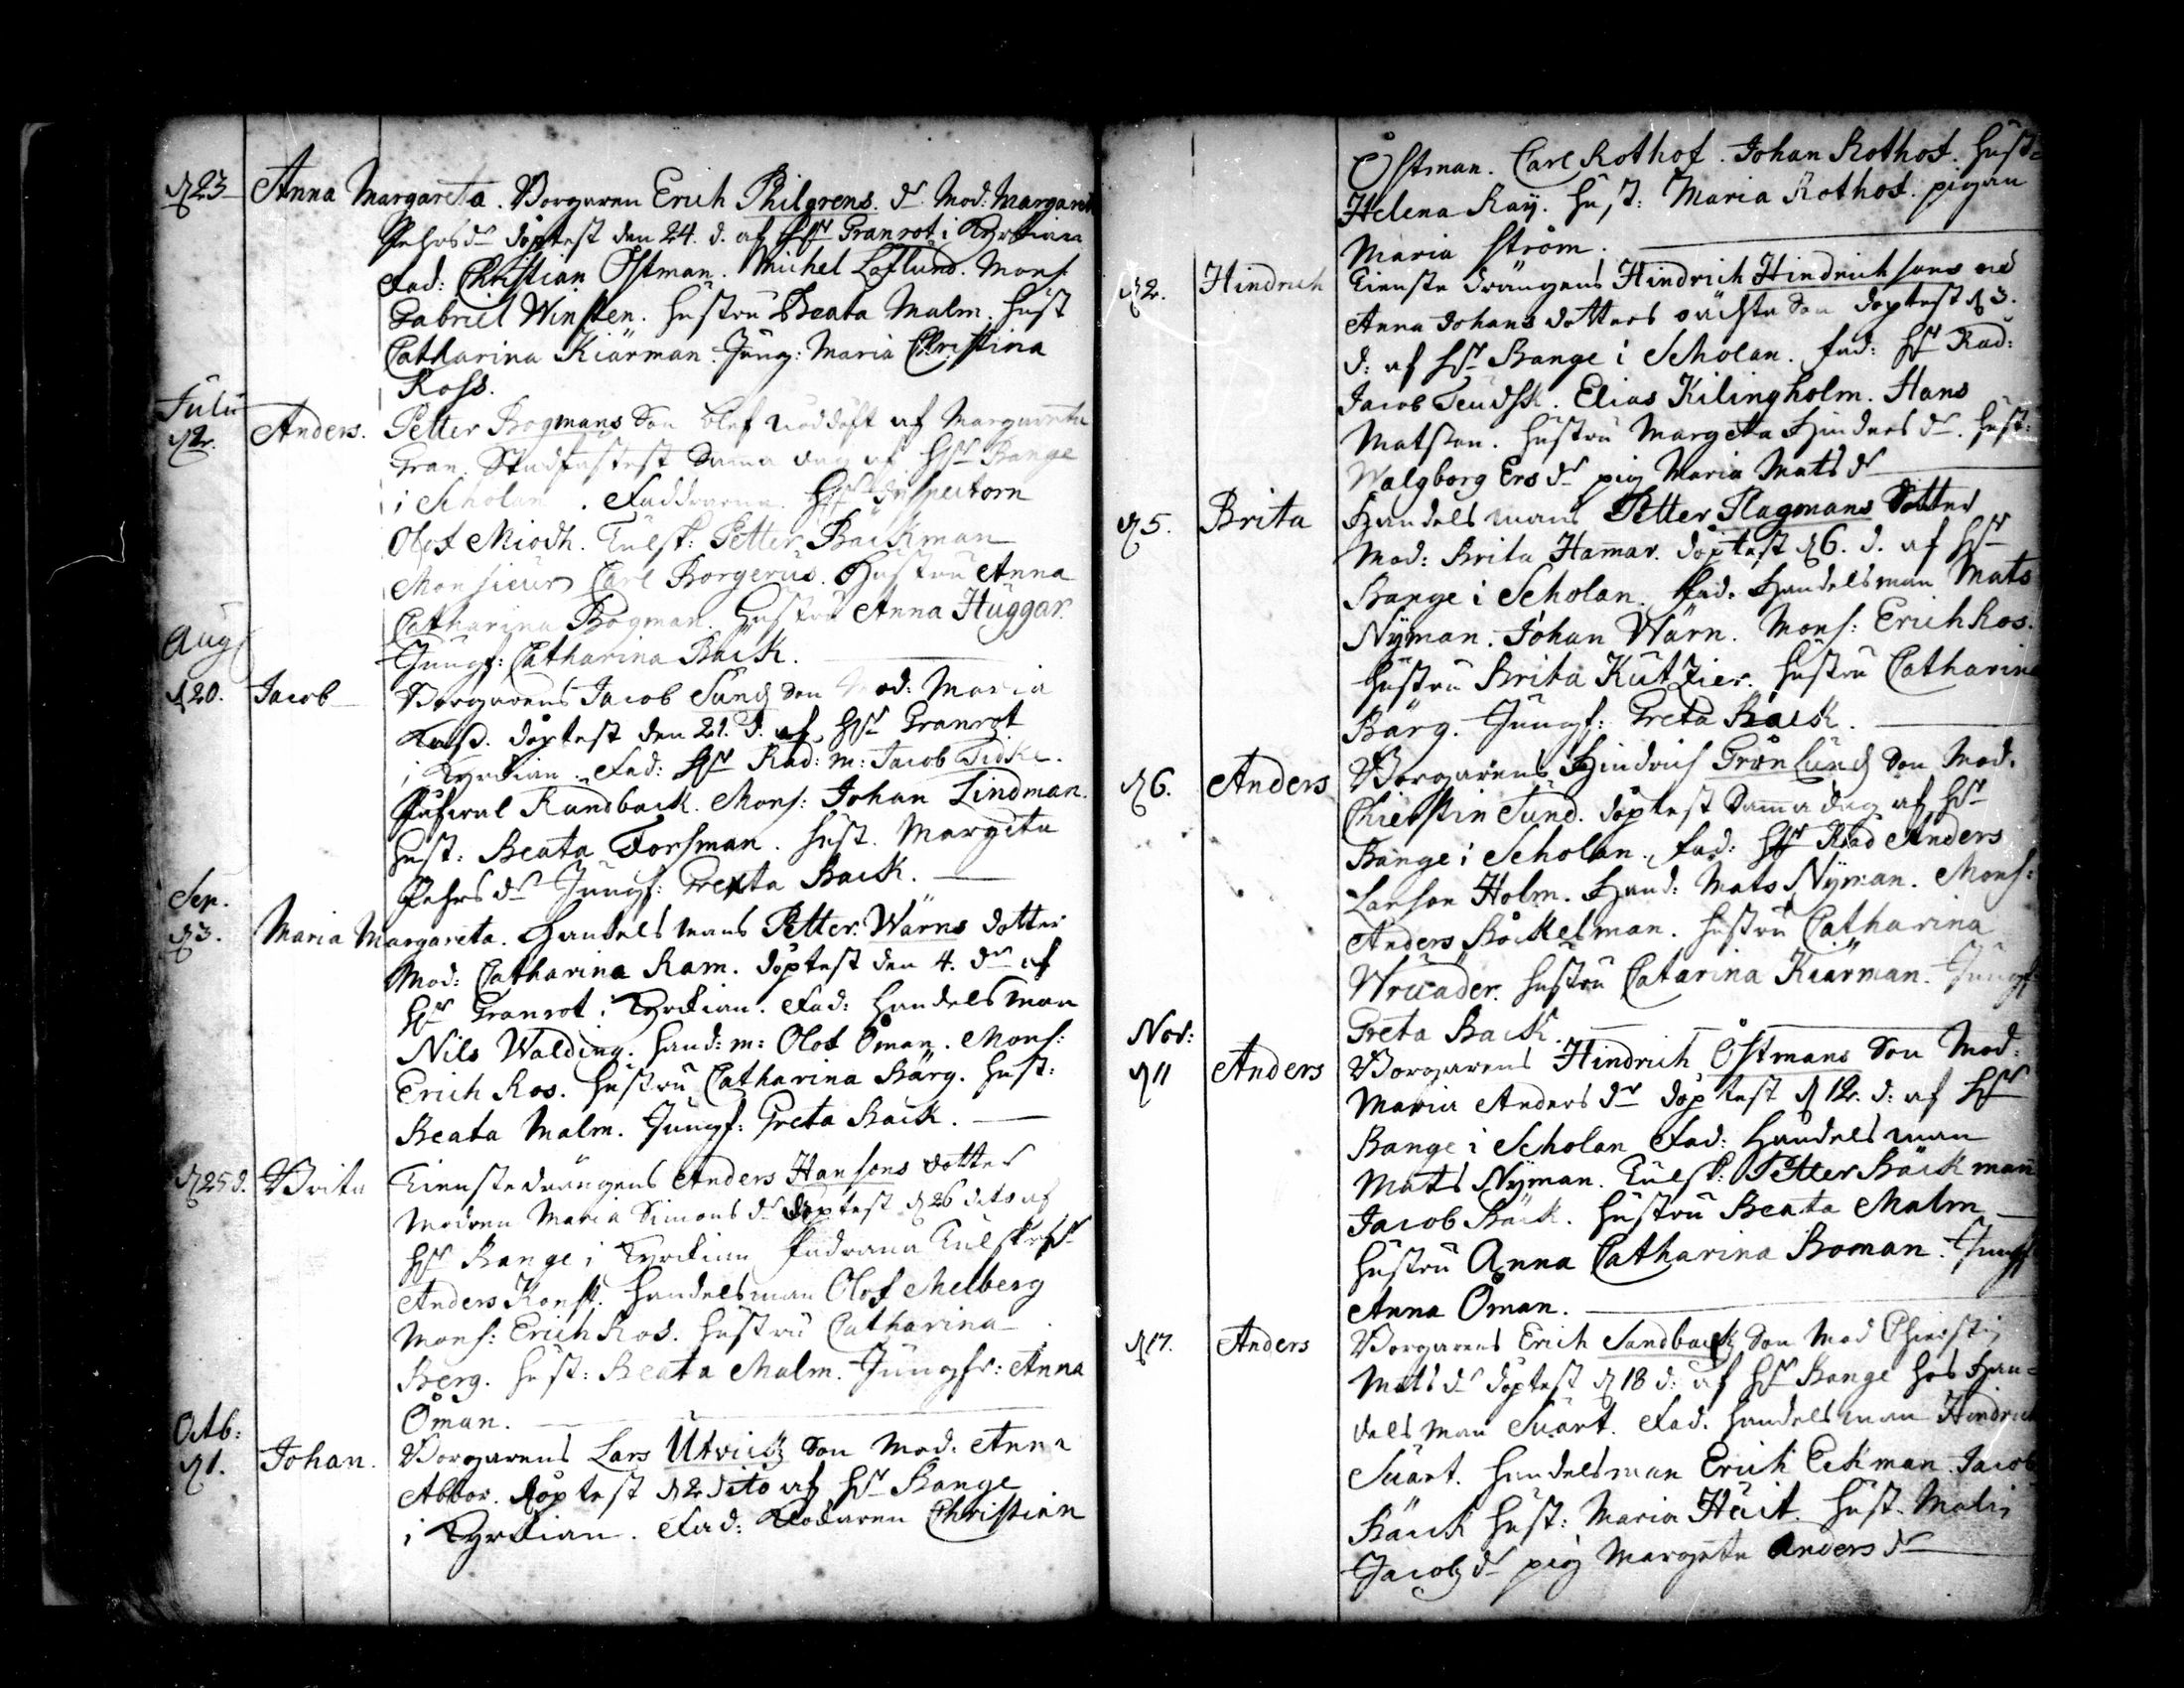 d 23 Anna Margareta. Borgaren Erich Philgrens. dr. Mod: Margareta
Pehrsdr döptest den 24. d. af Hr Granrot i Kyrkian
Fad: Christian Östman. Michel Löflund. Mons.
Gabriel Winsten. hustru Beata Malm. hust
Catharina Kiärman. Jung: Maria Christina
Ross.
Julii
d 2. Anders. Petter Bogmans Son blef nöddöpt af Margareta
Gran. Stadfästest Samma dag af Hr Bange
i Scholan. Faddrarna. Hr Inspectorn
Olof Miödh. Tulsk: Petter Bäckman
Monsieur Carl Borgerus. Hustru Anna
Catharina Bogman. Hustru Anna Huggar.
Jungf: Catharina Bäck.
Aug
d 20. Jacob Borgarens Jacob Sund Son Mod: Maria
döptest den 21. d. af Hr Granrot
i Kyrkian. Fad: Hr Råd: m: Jacob Tidke.
Randback. Mons: Johan Lindman.
Hust: Beata Forsman. hust. Margeta
Pehrs dr Jungf: Greta Back.
Sep.
d 3. Maria Margareta. Handelsmans Petter Wärns dotter
Mod: Catharina Ram. döptest den 4. dr af
Hr Granrot i Kyrkian. Fad: Handelsman
Nils Walding. hand: m: Olof Öman. Mons:
Erich Ros. hustru Catharina Bärg. hust:
Beata Malm. Jungf: Greta Back.
d 25 d. Brita Tienstedrängens Anders Hansons dotter
Modren Maria Simons dr döptest d 26 dito af
Hr Bange i Kyrkian Fadrana
Anders Konst. Handelsman Olof Melberg
Mons: Erich Ros. hustru Catharina
Berg. hust: Beata Malm. Jungfr: Anna
Öman.
Octb:
d 1. Johan. Borgarens Lars Utvick Son Mod: Anna
Abbor. döptest d 2 dito af Hr Bange
i Kyrkian. Fad: Christian
Östman. Carl Rothof. Johan Rothof. hust=
Helena Raÿ. hust: Maria Rothof. pigan
Maria Ström.
d 2. Hindrich Tienste drängens Hindrich Hindrichsons och
Anna Johans dotters oächta Son döptest d 3.
d: af Hr Bange i Scholan. Fad: Hr Råd:
Jacob Teudsk. Elias Kilingholm. Hans
Matsson. hustru Margeta Hinders dr. hust:
Walgborg Ers dr pig Maria Mats dr
d 5. Brita Handelsmans Petter Plagmans Dotter
Mod: Brita Hamar. döptest d 6. d. af Hr
Bange i Scholan. Fad. Handelsman Mats
Nÿman. Johan Wärn. Mons: Erich Ros.
hustru Brita Kutzier. hustru Catharina
Bärg. Jungf: Greta Back.
d 6. Anders Borgarens Hindrich Grönlund Son Mod.
Chierstin Sund. döptest Samma dag af Hr
Bange i Scholan. Fad: Hr Råd Anders
Larson Holm. Hand: Mats Nÿman. Mons:
Anders Böckelman. hustru Catharina
hustru Catarina Kiärman. Jungf
Greta Back.
Nov:
d 11 Anders Borgarens Hindrich Östmans Son Mod:
Maria Anders dr döptest d 12. d: af Hr
Bange i Scholan Fad: Handelsman
Mats Nÿman. Tulsk: Petter Bäckman
Jacob Bäck. hustru Beata Malm
hustru Anna Catharina Boman. Jungf
Anna Öman.
d 17. Anders Borgarens Erich Sandback Son Mod Chierstin
Mats dr döptest d 18 d: af Hr Bange hos Han=
dels man Suart. Fad. Handelsman Hindrich
Suart. Handelsman Erich Eckman Jacob
Bäck hust: Maria Huit. hust. Malin
Jacobs dr pig Margeta Anders dr